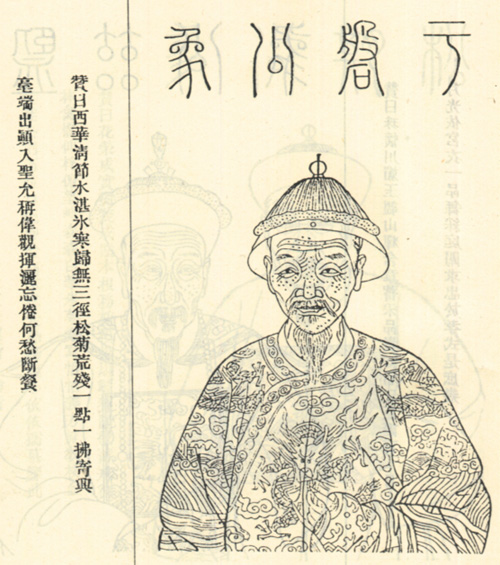 公象
贊曰西華清節水湛氷寒歸無三徑松菊荒殘一點一拂寄興
毫端出顚入聖允稱偉觀揮灑忘倦何愁斷餐